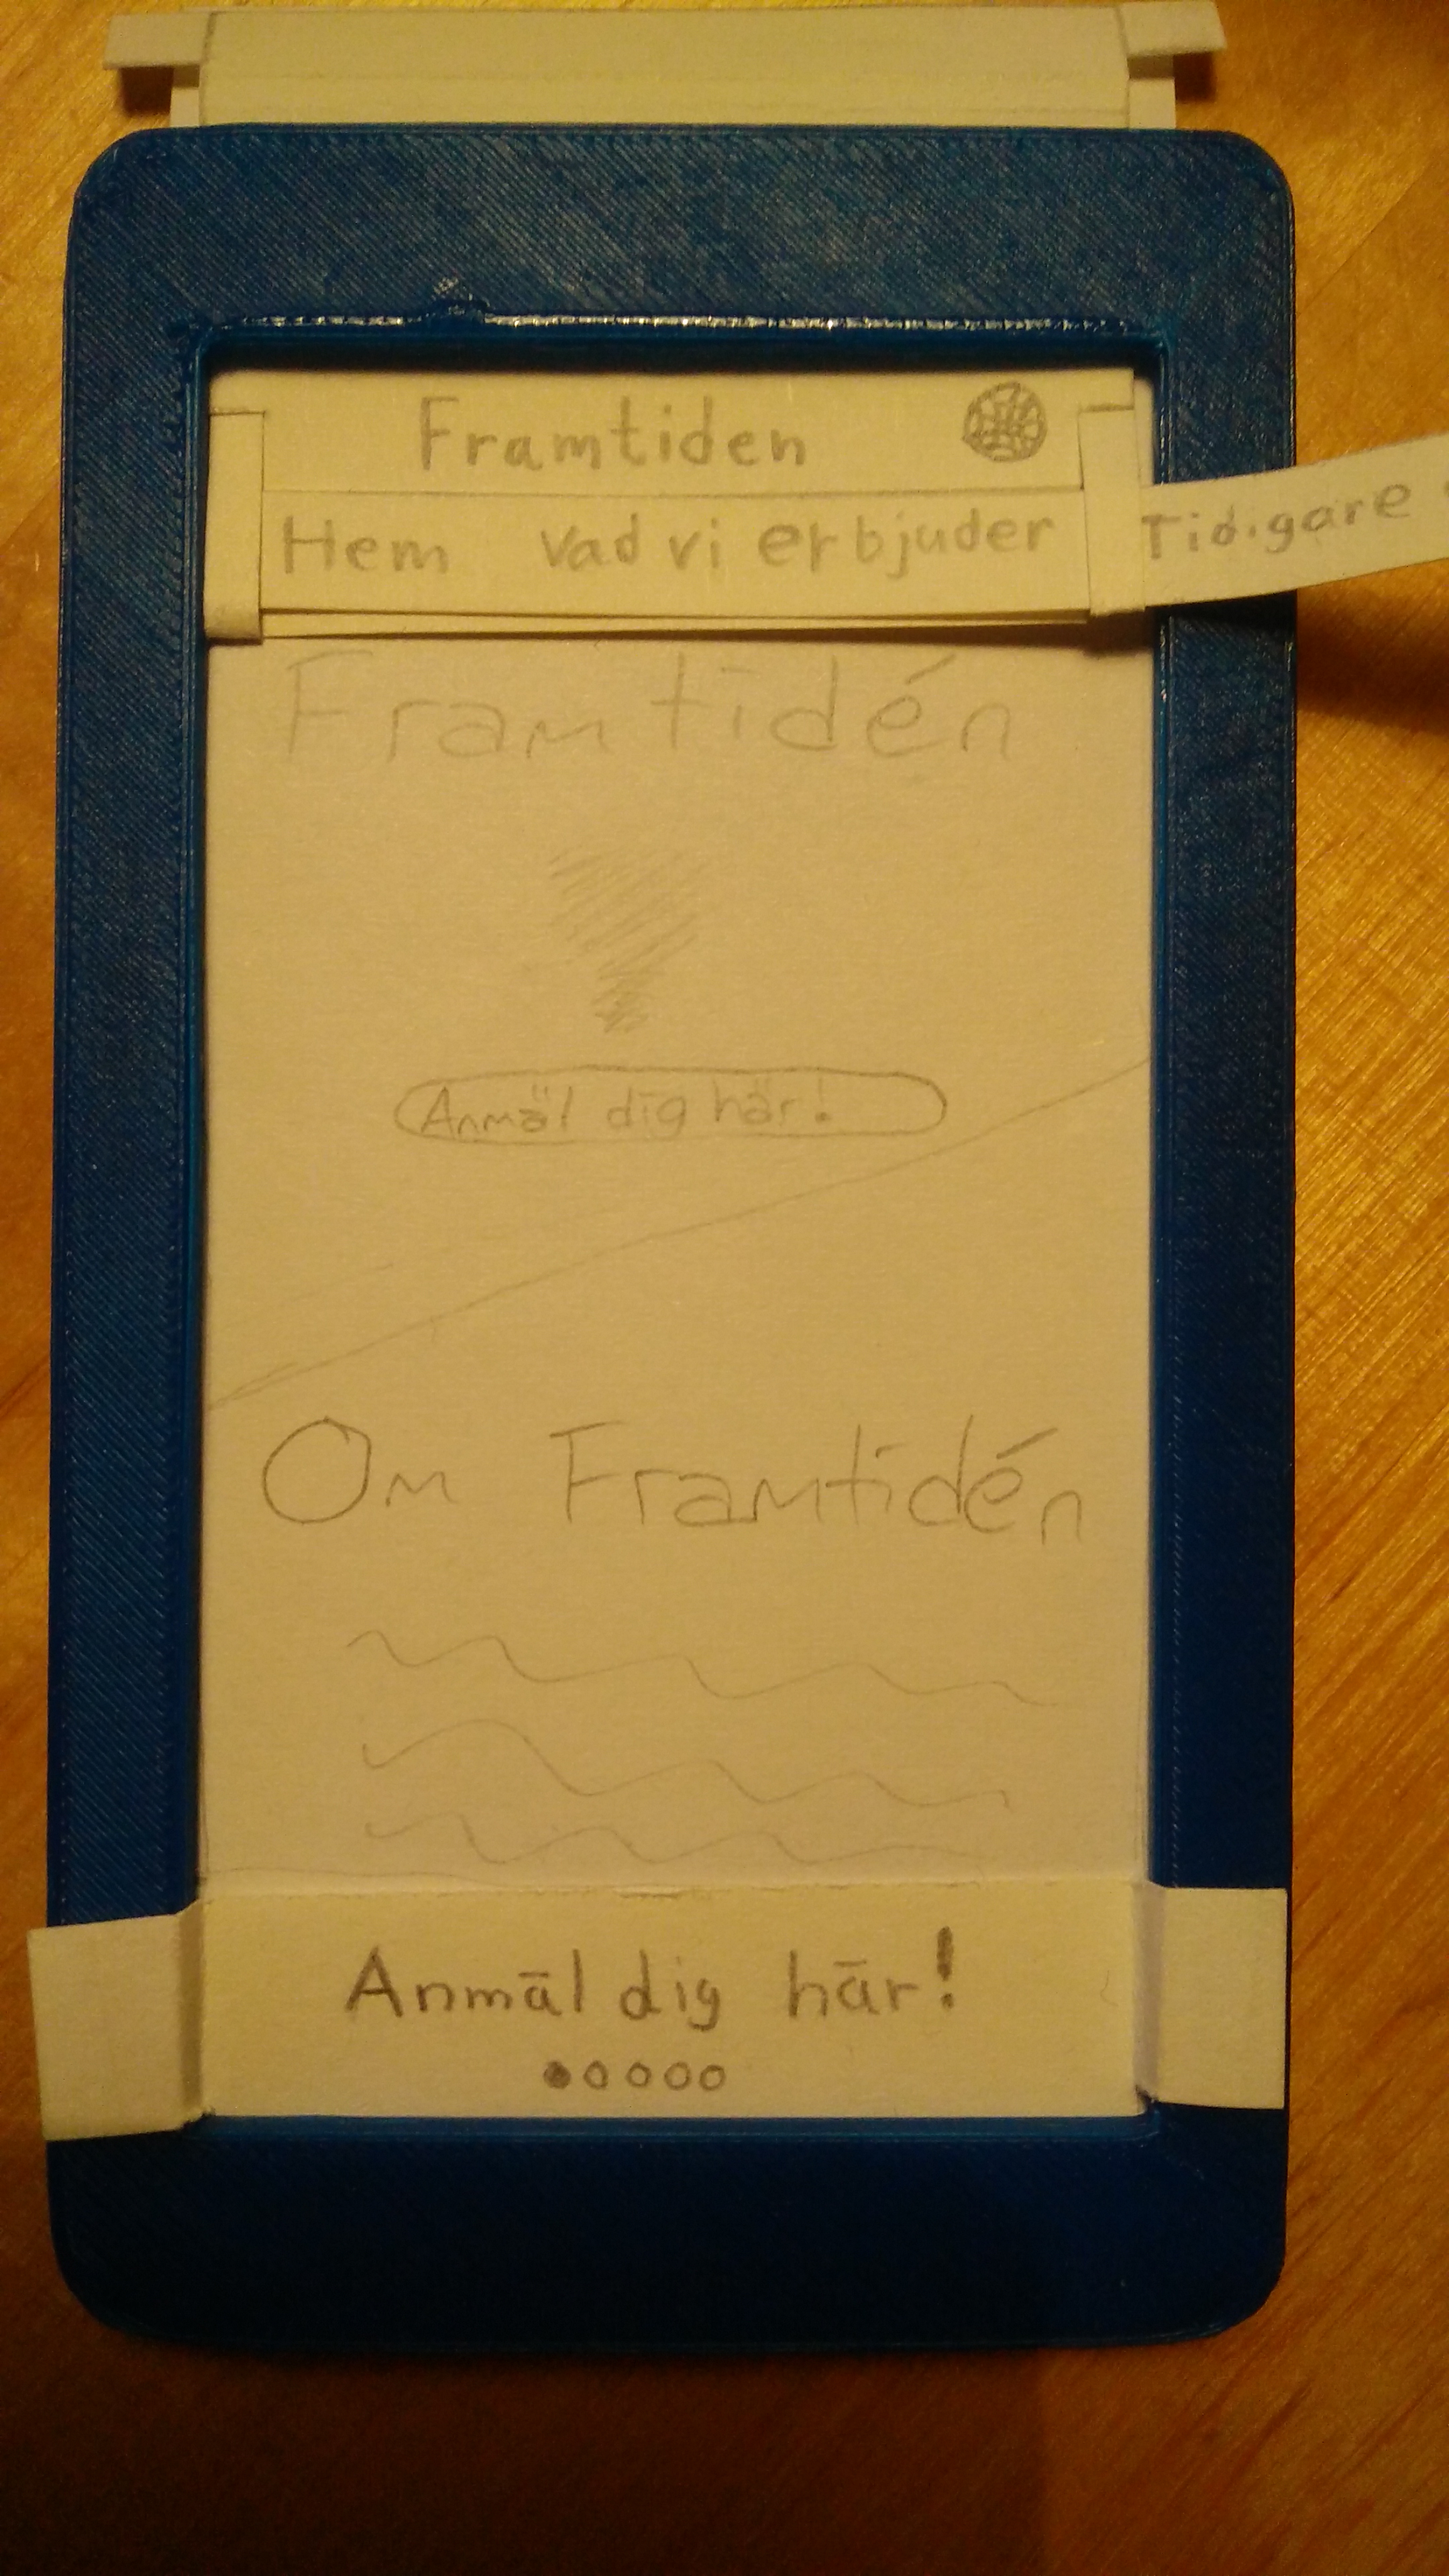 Framtiden
Hem Vad vi erbjuder Tidigare
Framtidén
Anmäl dig här!
Om Framtidén
Anmäl dig här!